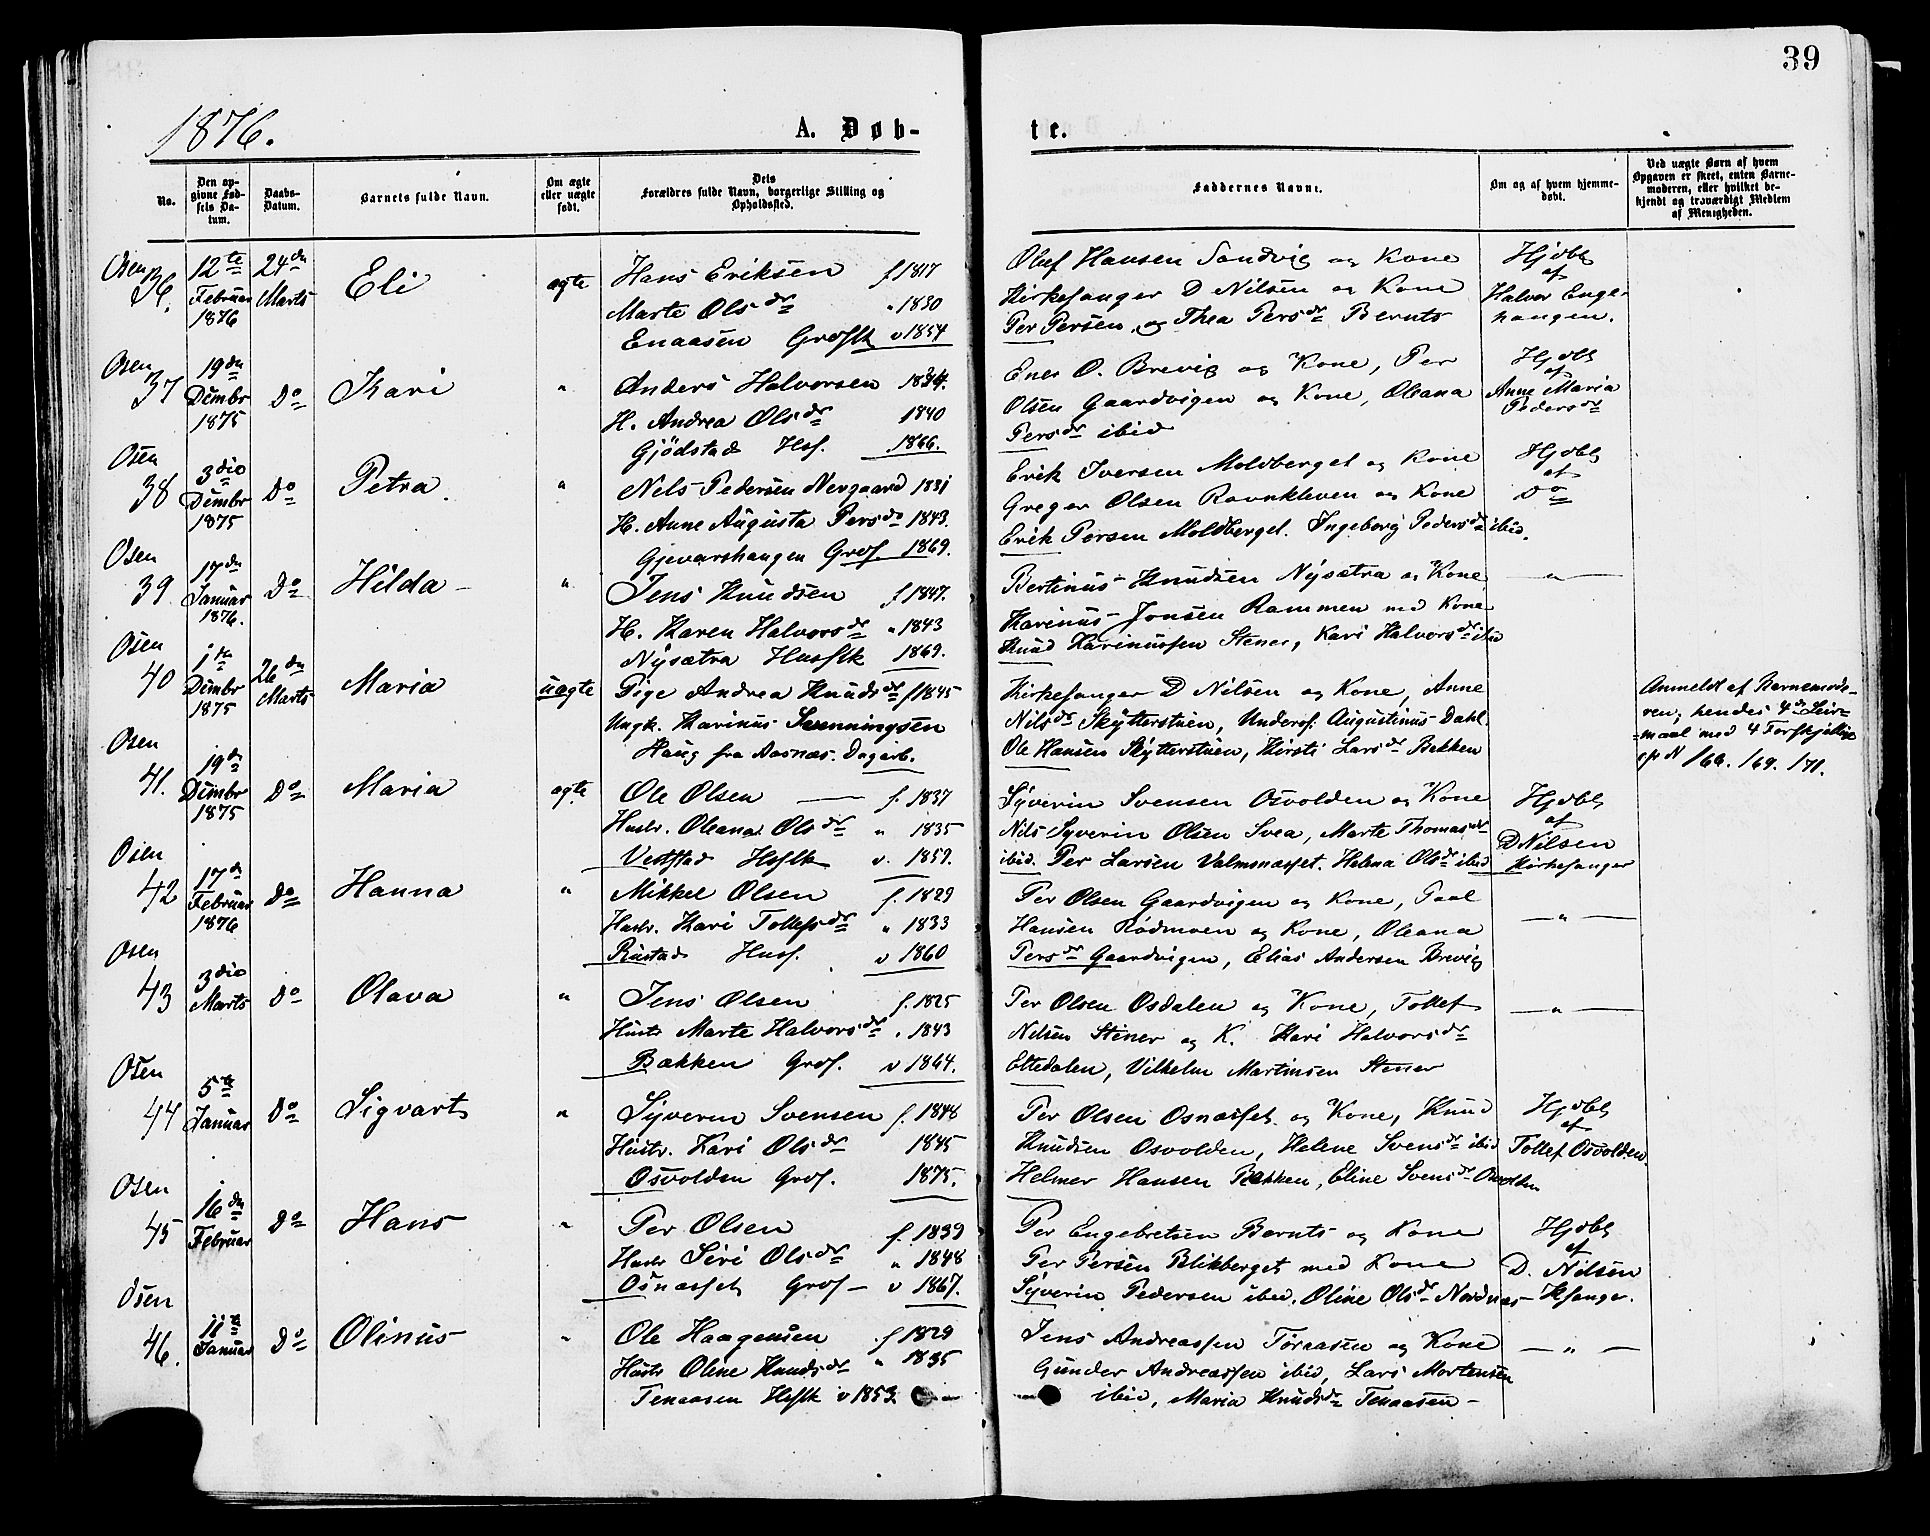 39
1876.
A. Døb-
te.
No.
Den op-
givne Fød-
sels Da-
tum.
Daabs-
Datum.
Barnets fulde Navn.
Om ægte
eller uægte
født.
Dets
Forældres fulde Navn, borgerlige Stilling og
Opholdssted.
Faddernes Navne.
Om og af hvem hjemme-
døbt.
Ved uægte Børn af hvem
Opgaven er skeet, enten Barne-
moderen, eller hvilket be-
kjendt og troværdigt Medlem
af Menigheden.
Osen
36.
12te
Februar
1876
24dn
Marts
Eli
ægte
Hans Eriksen f 1817
Marte Olsdr " 1830
Enaasen v 1854
Oluf Hansen Sandvig og Kone
Kirkesanger D Nilsen og Kone
Per Persen, og Thea Persdr Bernts
Hjdbt
af
Halvor Enge-
haugen.
Osen
37
19dn
Dcmbr
1875
Do
Kari
"
Anders Halvorsen 1834.
H. Andrea Olsdr 1840
Gjödstad Hsf. 1866.
Ener O. Brevig og Kone, Per
Olsen Gaardvigen og Kone, Oleana
Persdr ibid
Hjdbt
af
Anne Maria
Pedersdr
Osen
38
3dio
Dcmbr
1875
Do
Petra
"
Nels Pedersen Nergaard 1831
H. Anne Augusta Persdr 1843.
Gjevarshaugen Grof. 1869.
Erik Iversen Moldberget og Kone
Greger Olsen Ravnkleven og Kone
Erik Persen Moldberget. Ingeborg Pedersdr ibid.
Hjdbt
af
Do
Osen
39.
17dn
Januar
1876.
Do
Hilda
"
Jens Knudsen f 1847.
H. Karen Halvorsdr " 1843
Nysætra Husflk 1869.
Bertinus Knudsen Nysætra og Kone
Karinus Jonsen Rammen med Kone
Knud Karinussen Stener, Kari Halvorsdr ibid
"
Osen
40
1te
Dcmbr
1875
26dn
Marts
Maria
uægte
Pige Andrea Knudsdr f 1845
Ungk. Karinus Svenningsen
Haug fra Aasnæs. Dagarb.
Kirkesanger D Nilsen og Kone, Anne
Nilsdr Skytterstuen, Underof. Augustinus Dahl.
Ole Hansen Skytterstuen, Kirsti Larsdr Bekken
Anmeldt af Barnemode-
ren, hendes 4de Leir-
maal med 4 Forskjellige
cfr N 168. 169. 171.
Osen
41.
19de
Dcmbr
1875
Do
Maria
ægte
Ole Olsen f. 1837
Hustr. Oleana Olsdr " 1835
Veststad Hsflk v. 1859.
Syverin Svensen Osvolden og Kone
Nils Syverin Olsen Svea, Marte Thomasdr
ibid. Per Larsen Valmsnæsset. Helena Olsdr ibid
Hjdbt
af
D Nilsen
Kirkesanger
Osen
42
17de
Februar
1876
Do
Hanna
"
Mikkel Olsen f. 1829
Hustr. Kari Tollefsdr " 1833
Rustad Husf. v 1860
Per Olsen Gaardvigen og Kone, Paal
Hansen Rødmoen og Kone, Oleana
Persdr Gaardvigen, Elias Andersen Brevig
"
Osen
43
3dio
Marts
Do
Olava
"
Jens Olsen f. 1825
Hustr Marte Halvorsdr " 1843
Bækken Grof. v 1864.
Per Olsen Osdalen og Kone, Tollef
Nelsen Stener og K. Kari Halvorsdr
Eltedalen, Vilhelm Martinsen Stener
"
Osen
44
5te
Januar
Do
Sigvart
"
Syveren Svensen f. 1848
Hustr. Kari Olsdr 1845
Osvolden Grof. 1875.
Per Olsen Osnæsset og Kone, Knud
Knudsen Osvolden, Helene Svensdr ibid
Helmer Hansen Bækken, Eline Svensdr Osvolden
Hjdbt
af
Tollef Osvolden.
Osen
45
16dn
Februar
Do
Hans
"
Per Olsen f. 1839
Hustr Siri Olsdr " 1848
Osnæsset Grof v 1867.
Per Engebretsen Bernts og Kone
Per Persen Blikberget med Kone
Syverin Pedersen ibid, Oline Olsdr Nordnæs
Hjdbt
af
D. Nilsen
Ksanger.
Osen
46.
11te
Januar
Do
Olinus
"
Ole Haagensen f 1829
Hustr Oline Knudsdr " 1835
Tenaasen Hsflk v 1853
Jens Andreassen Toraasen og Kone
Gunder Andreassen ibid, Lars Mortensen
ibid, Maria Knudsdr Tenaasen
"